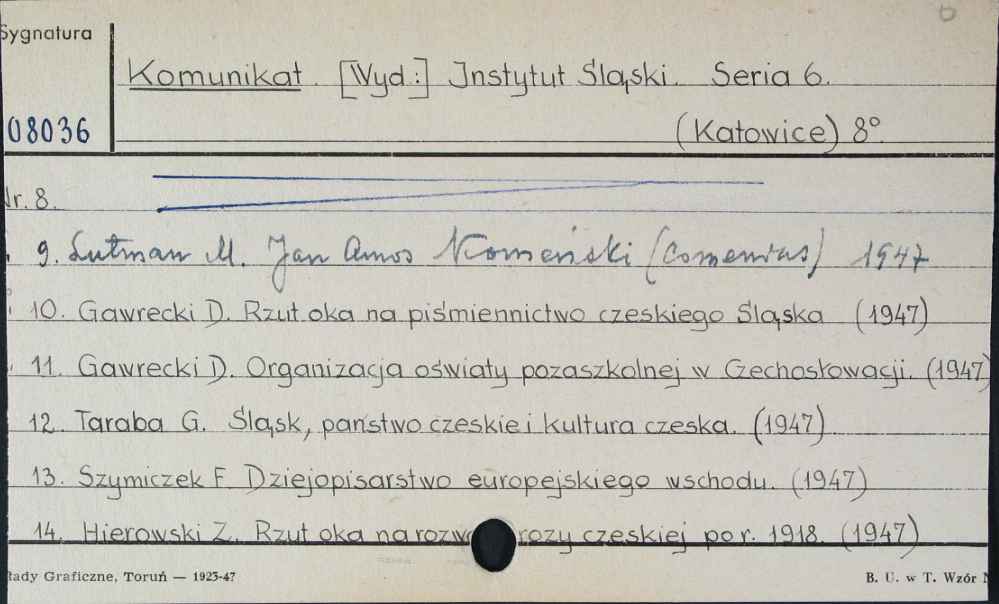 Sygnatura
Komunikat. [Wyd:] Instytut Śląski. Seria 6.
08036
(Katowice) 8°.
Nr. 8.
9. Lutman M. Jan Amos Komeński (Comenius) 1947
10. Gawrecki D. Rzut oka na piśmiennictwo czeskiego Śląska (1947)
11. Gawrecki D. Organizacja oświaty pozaszkolnej w Czechosłowacji. (1947)
12. Taraba G. Śląsk, państwo czeskie i kultura czeska. (1947)
13. Szymiczek F. Dziejopisarstwo europejskiego wschodu. (1947)
14. Hierowski Z. Rzut oka na rozw rozy czeskiej po r. 1918. (1947)
łady Graficzne, Toruń — 1923-47
B. U. w T. Wzór N